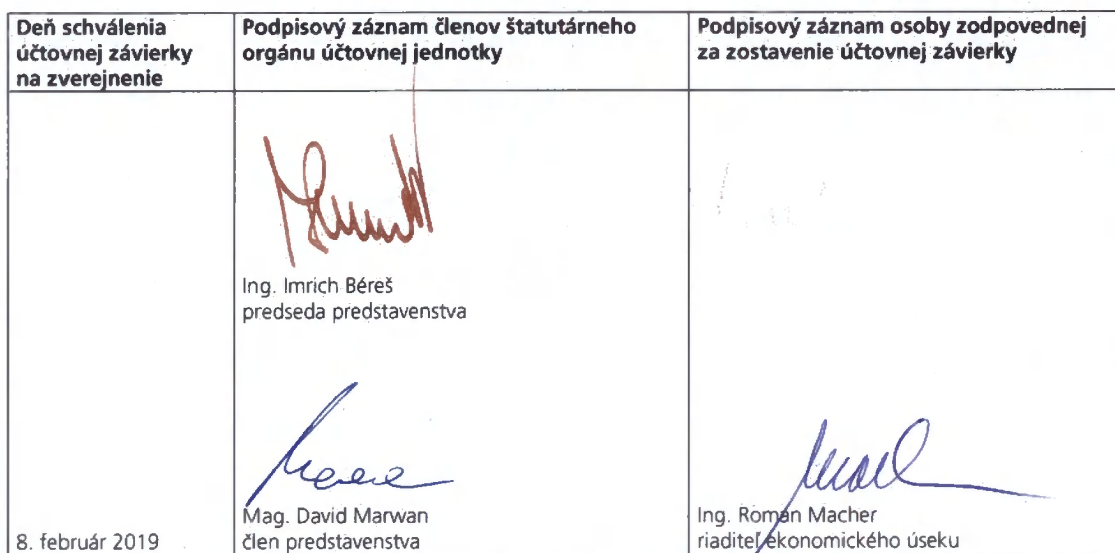 Deň schválenia
účtovnej závierky
na zverejnenie
Podpisový záznam členov štatutárneho
orgánu účtovnej jednotky
Podpisový záznam osoby zodpovednej
za zostavenie účtovnej závierky
Ing. Imrich Béreš
predseda predstavenstva
8. február 2019
Mag. David Marwan
člen predstavenstva
Ing. Roman Macher
riaditeľ ekonomického úseku